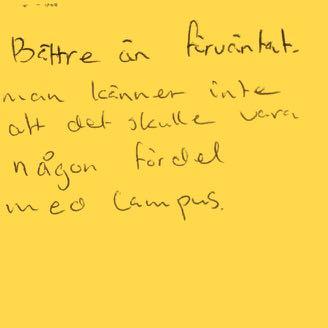 Bättre än förväntat.
man känner inte
att det skulle vara
någon fördel
med Campus.